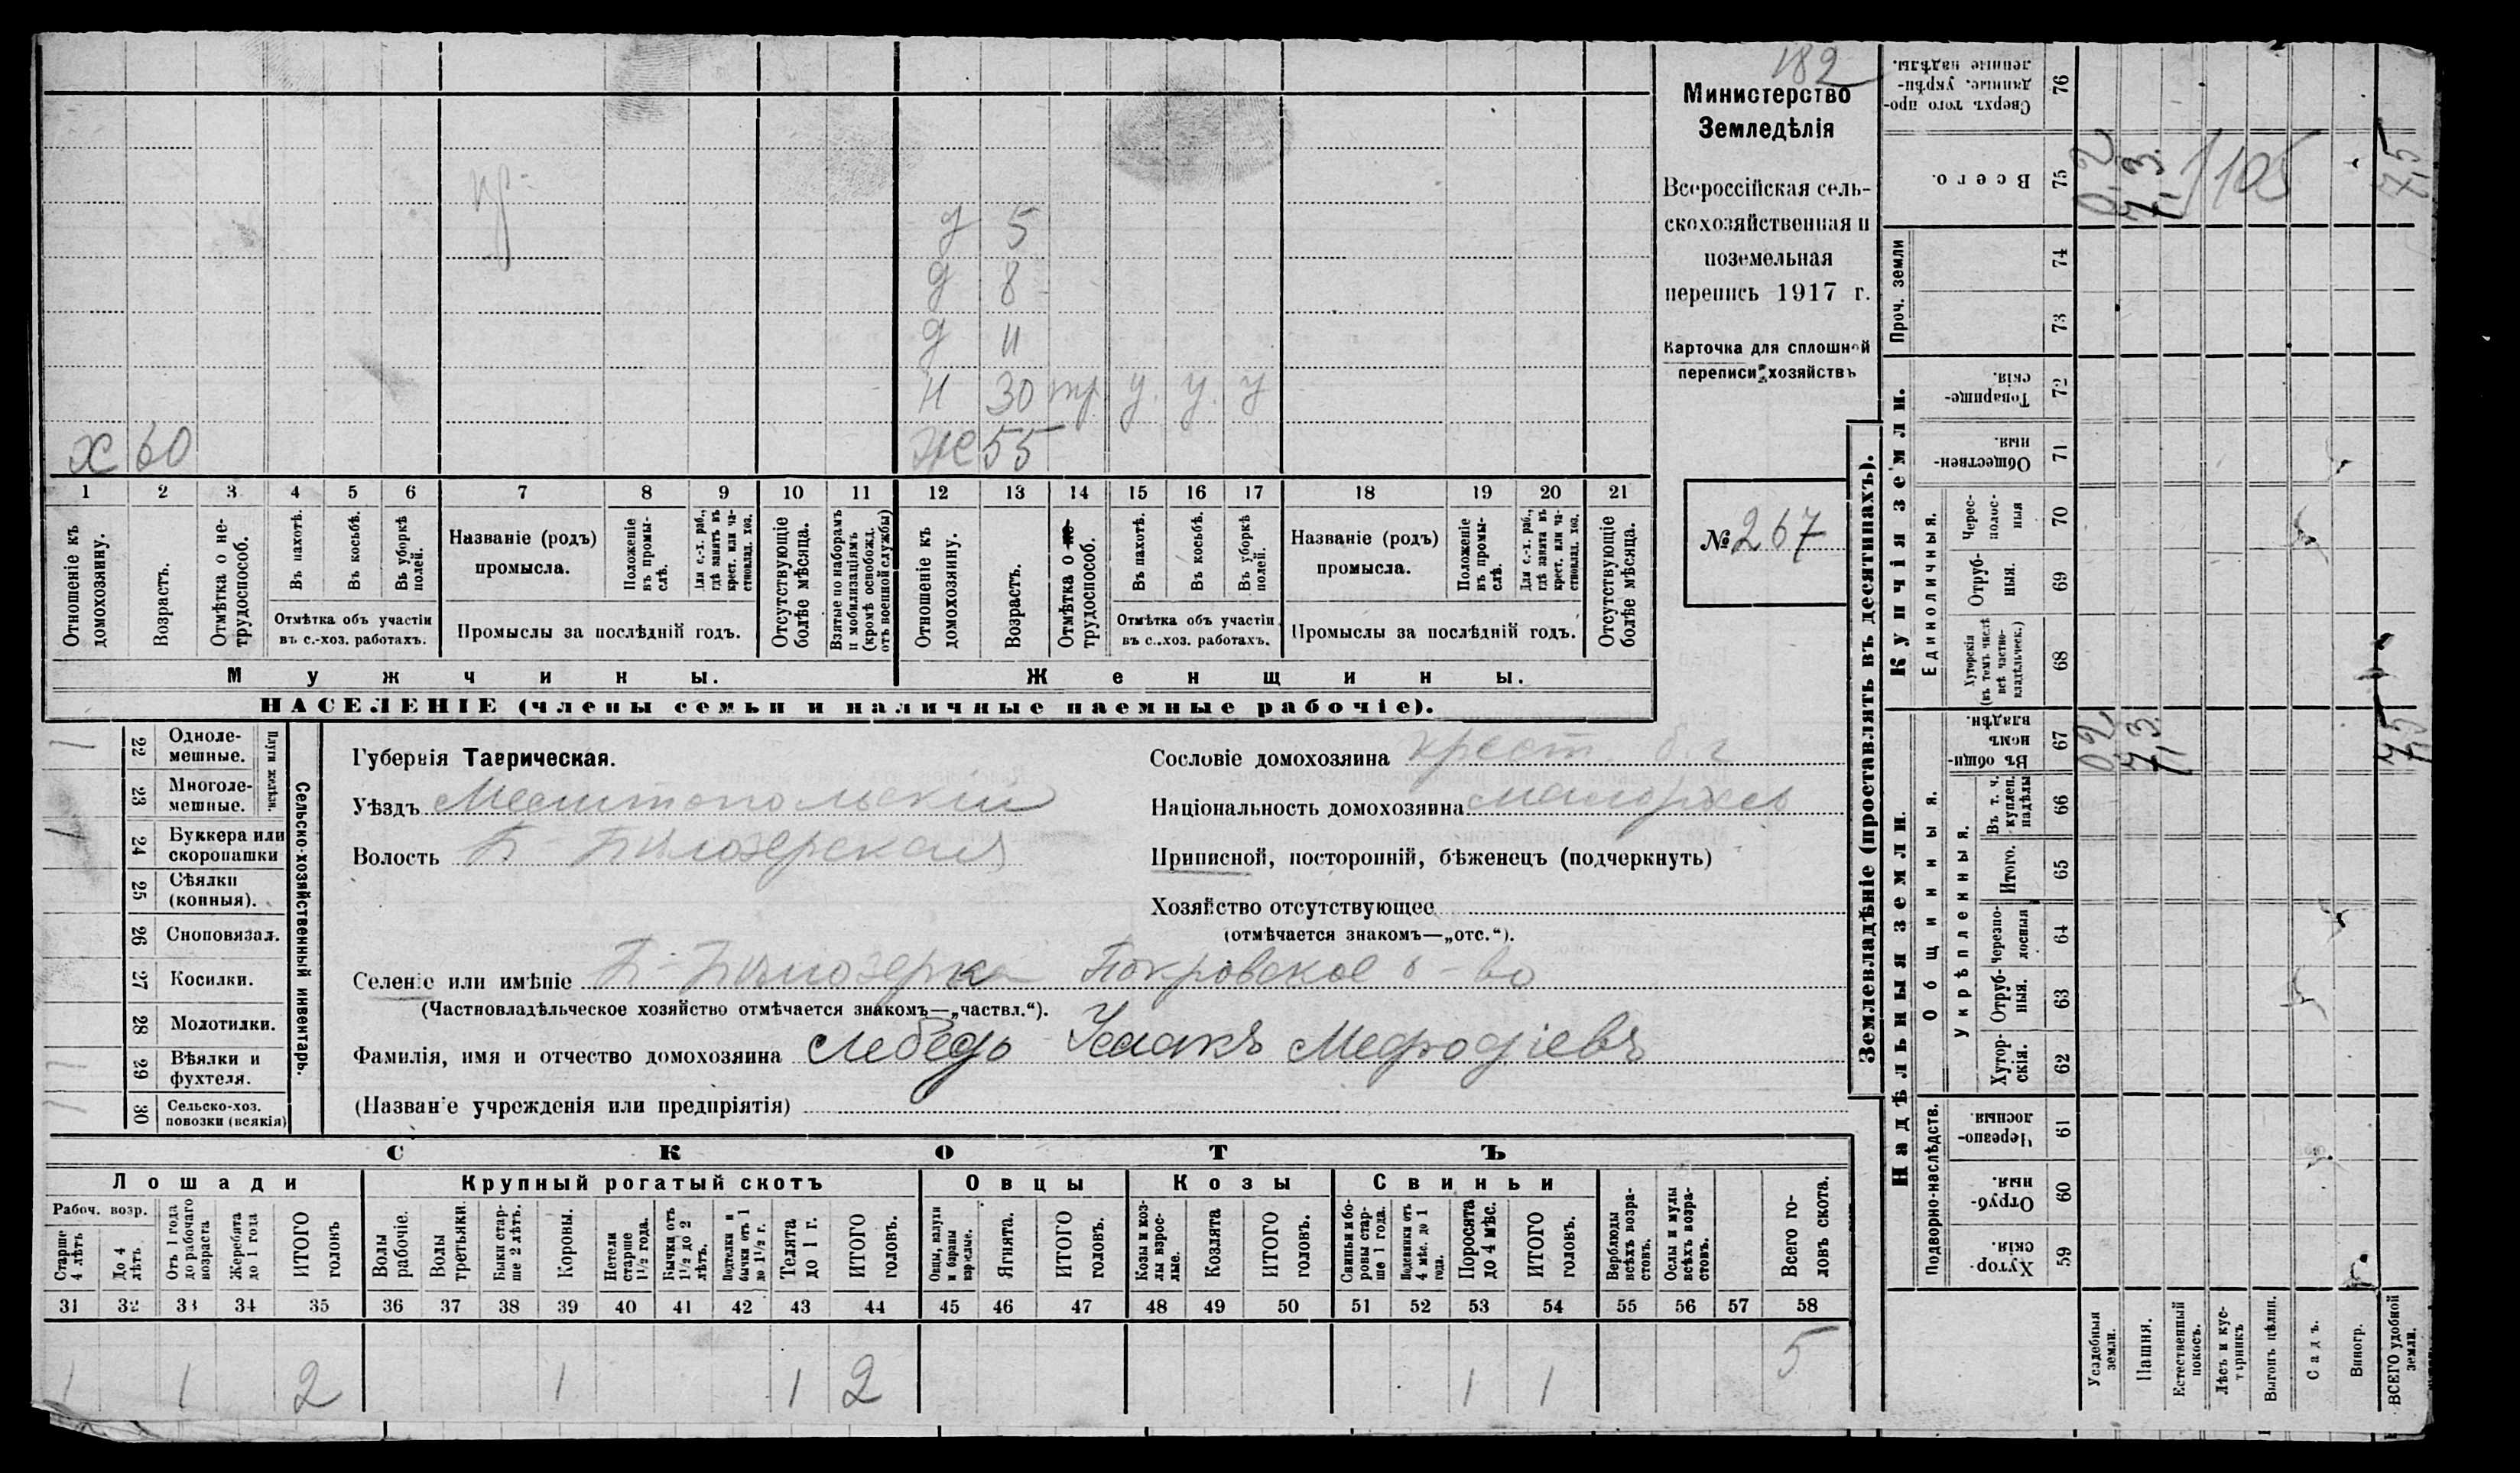 182
Министерство
Земледѣлія
Всероссійская сель-
скохозяйственная и
поземельная
перепись 1917 г.
Карточка для сплошной
переписи хозяйствъ
№ 267
д 5
д 8
д 11
н 30 тр. у. у. у
х 60
ж 55
1 2 3 4 5 6 7 8 9 10 11 12 13 14 15 16 17 18 19 20 21
Отношеніе къ домохозяину.
Возрастъ.
Отмѣтка о не-трудоспособ.
Въ пахотѣ.
Въ косьбѣ.
Въ уборкѣ полей.
Отмѣтка объ участіи въ с.-хоз. работахъ.
Названіе (родъ) промысла.
Положеніе въ промы-слѣ.
Для с.-х. раб., гдѣ занятъ въ крест. или ча-стновлад. хоз.
Промыслы за послѣдній годъ.
Отсутствующіе болѣе мѣсяца.
Взятые по наборамъ и мобилизаціямъ (кромѣ освобожд. отъ военной службы)
Отношеніе къ домохозяину.
Возрастъ.
Отмѣтка о не-трудоспособ.
Въ пахотѣ.
Въ косьбѣ.
Въ уборкѣ полей.
Отмѣтка объ участіи въ с.-хоз. работахъ.
Названіе (родъ) промысла.
Положеніе въ промы-слѣ.
Для с.-х. раб., гдѣ занята въ крест. или ча-стновлад. хоз.
Промыслы за послѣдній годъ.
Отсутствующіе болѣе мѣсяца.
Мужчины.
Женщины.
НАСЕЛЕНІЕ (члены семьи и наличные наемные рабочіе).
Сельско-хозяйственный инвентарь.
Плуги желѣзн.
22 Одноле-мешные. 1
23 Многоле-мешные.
24 Буккера или скоропашки 1
25 Сѣялки (конныя).
26 Сноповязал.
27 Косилки.
28 Молотилки.
29 Вѣялки и фухтеля. 1
30 Сельско-хоз. повозки (всякія) 1
Губернія Таврическая.
Уѣздъ Мелитопольскій
Волость Б-Бѣлозерская
Сословіе домохозяина крест.
Національность домохозяина малоросъ
Приписной, посторонній, бѣженецъ (подчеркнуть)
Хозяйство отсутствующее
(отмѣчается знакомъ—„отс.“).
Селеніе или имѣніе Б-Бѣлозерка Покровское о-во
(Частновладѣльческое хозяйство отмѣчается знакомъ—„частвл.“).
Фамилія, имя и отчество домохозяина Лебедь Исаакъ Мефодіевъ
(Названіе учрежденія или предпріятія)
СКОТЪ
Лошади
Крупный рогатый скотъ
Овцы
Козы
Свиньи
Рабоч. возр.
Старше 4 лѣтъ
До 4 лѣтъ
Отъ 1 года до рабочаго возраста
Жеребята до 1 года
ИТОГО головъ
Волы рабочіе.
Волы третьяки.
Быки стар-ше 2 лѣтъ.
Коровы.
Нетели старше 1½ года.
Бычки отъ 1½ до 2 лѣтъ.
Подтелки и бычки отъ 1 до 1½ г.
Телята до 1 г.
ИТОГО головъ.
Овцы, валухи и бараны взрослые.
Ягнята.
ИТОГО головъ.
Козы и коз-лы взрос-лые.
Козлята
ИТОГО головъ.
Свиньи и бо-ровы стар-ше 1 года.
Подсвинки отъ 4 мѣс. до 1 года.
Поросята до 4 мѣс.
ИТОГО головъ.
Верблюды всѣхъ возра-стовъ.
Ослы и мулы всѣхъ возра-стовъ.
Всего го-ловъ скота.
31 32 33 34 35 36 37 38 39 40 41 42 43 44 45 46 47 48 49 50 51 52 53 54 55 56 57 58
1 1 2 1 1 2 1 1 5
Землевладѣніе (проставлять въ десятинахъ).
Надѣльныя земли.
Купчія земли.
Проч. земли
Подворно-наслѣдств.
Общинныя.
Укрѣпленныя.
Единоличныя.
Хутор-скія. 59
Отруб-ныя. 60
Черезпо-лосныя 61
Хутор-скія. 62
Отруб-ныя. 63
Черезпо-лосныя 64
Итого. 65
Въ т. ч. куплен. надѣлы 66
Въ общин-номъ владѣн. 67
Хуторскія (въ томъ числѣ всѣ частно-владѣльческ.) 68
Отруб-ныя. 69
Черес-полос-ныя 70
Обществен-ныя. 71
Товарище-скія. 72
73
74
Всего. 75
Сверхъ того про-данные, укрѣп-ленные надѣлы. 76
Усадебныя земли.
Пашня.
Естественный покосъ.
Лѣсъ и кус-тарникъ
Выгонъ цѣлин.
Садъ.
Виногр.
ВСЕГО удобной земли.
0,2
7,3
7,5
0,2
7,3
105
7,5